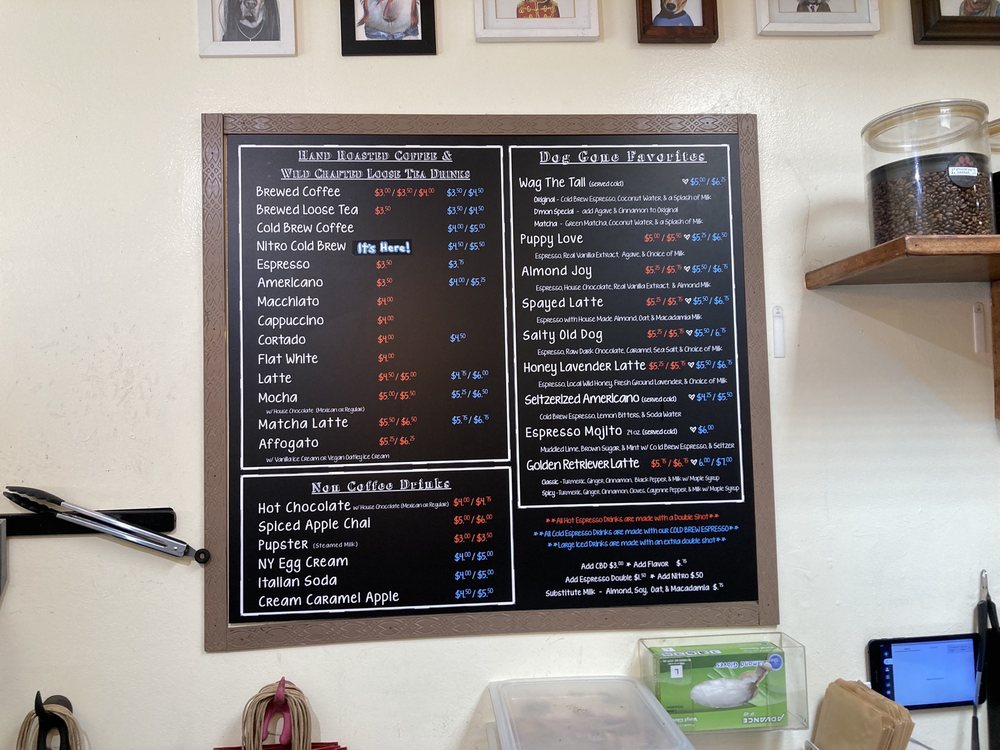 Hand Roasted Coffee &
Wild Crafted Loose Tea Drinks
Brewed Coffee $3.00 / $3.50 / $4.00 $3.50 / $4.50
Brewed Loose Tea $3.50 $3.50 / $4.50
Cold Brew Coffee $4.00 / $5.00
Nitro Cold Brew It's Here! $4.50 / $5.50
Espresso $3.50 $3.75
Americano $3.50 $4.00 / $5.25
Macchiato $4.00
Cappuccino $4.00
Cortado $4.00 $4.50
Flat White $4.00
Latte $4.50 / $5.00 $4.75 / $6.00
Mocha $5.00 / $5.50 $5.25 / $6.50
w/ House Chocolate (Mexican or Regular)
Matcha Latte $5.50 / $6.50 $5.75 / $6.75
Affogato $5.25 / $6.25
w/ Vanilla Ice Cream or Vegan Oatley Ice Cream
Non Coffee Drinks
Hot Chocolate w/ House Chocolate (Mexican or Regular) $4.00 / $4.75
Spiced Apple Chai $5.00 / $6.00
Pupster (Steamed Milk) $3.00 / $3.50
NY Egg Cream $4.00 / $5.00
Italian Soda $4.00 / $5.00
Cream Caramel Apple $4.50 / $5.50
Dog Gone Favorites
Wag The Tail (served cold) $5.00 / $6.25
Original - Cold Brew Espresso, Coconut Water, & a Splash of Milk
D'mon Special - add Agave & Cinnamon to Original
Matcha - Green Matcha, Coconut Water, & a Splash of Milk
Puppy Love $5.00 / $5.50 $5.25 / $6.50
Espresso, Real Vanilla Extract, Agave, & Choice of Milk
Almond Joy $5.25 / $5.75 $5.50 / $6.75
Espresso, House Chocolate, Real Vanilla Extract & Almond Milk
Spayed Latte $5.25 / $5.75 $5.50 / $6.75
Espresso with House Made Almond, Oat & Macadamia Milk
Salty Old Dog $5.25 / $5.75 $5.50 / 6.75
Espresso, Raw Dark Chocolate, Caramel, Sea Salt, & Choice of Milk
Honey Lavender Latte $5.25 / $5.75 $5.50 / $6.75
Espresso, Local Wild Honey, Fresh Ground Lavender, & Choice of Milk
Seltzerized Americano (served cold) $4.25 / $5.50
Cold Brew Espresso, Lemon Bitters, & Soda Water
Espresso Mojito 24 oz. (served cold) $6.00
Muddled Lime, Brown Sugar, & Mint w/ Cold Brew Espresso, & Seltzer
Golden Retriever Latte $5.75 / $6.75 6.00 / $7.00
Classic - Turmeric, Ginger, Cinnamon, Black Pepper, & Milk w/ Maple Syrup
Spicy - Turmeric, Ginger, Cinnamon, Cloves, Cayenne Pepper, & Milk w/ Maple Syrup
**All Hot Espresso Drinks are made with a Double Shot**
**All Cold Espresso Drinks are made with our COLD BREW ESPRESSO**
**Large Iced Drinks are made with an extra double shot**
Add CBD $3.00 * Add Flavor $.75
Add Espresso Double $1.50 * Add Nitro $.50
Substitute Milk - Almond, Soy, Oat, & Macadamia $.75
L
ADVANCE
Vinyl Gloves